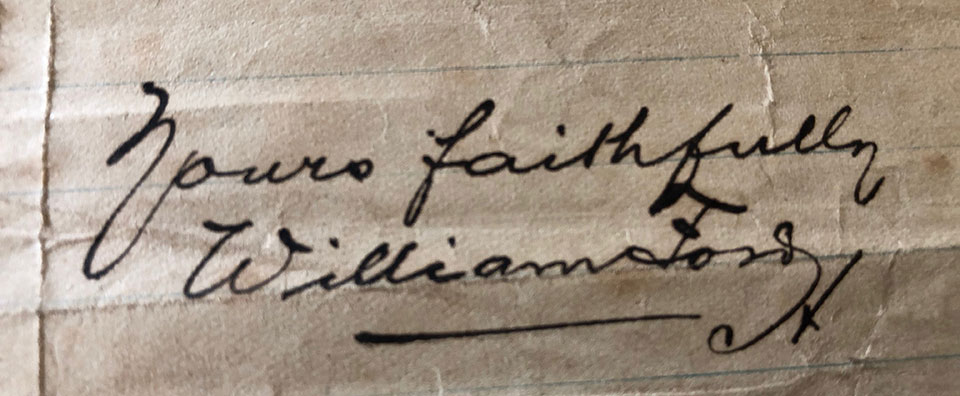 Yours faithfully
William Ford